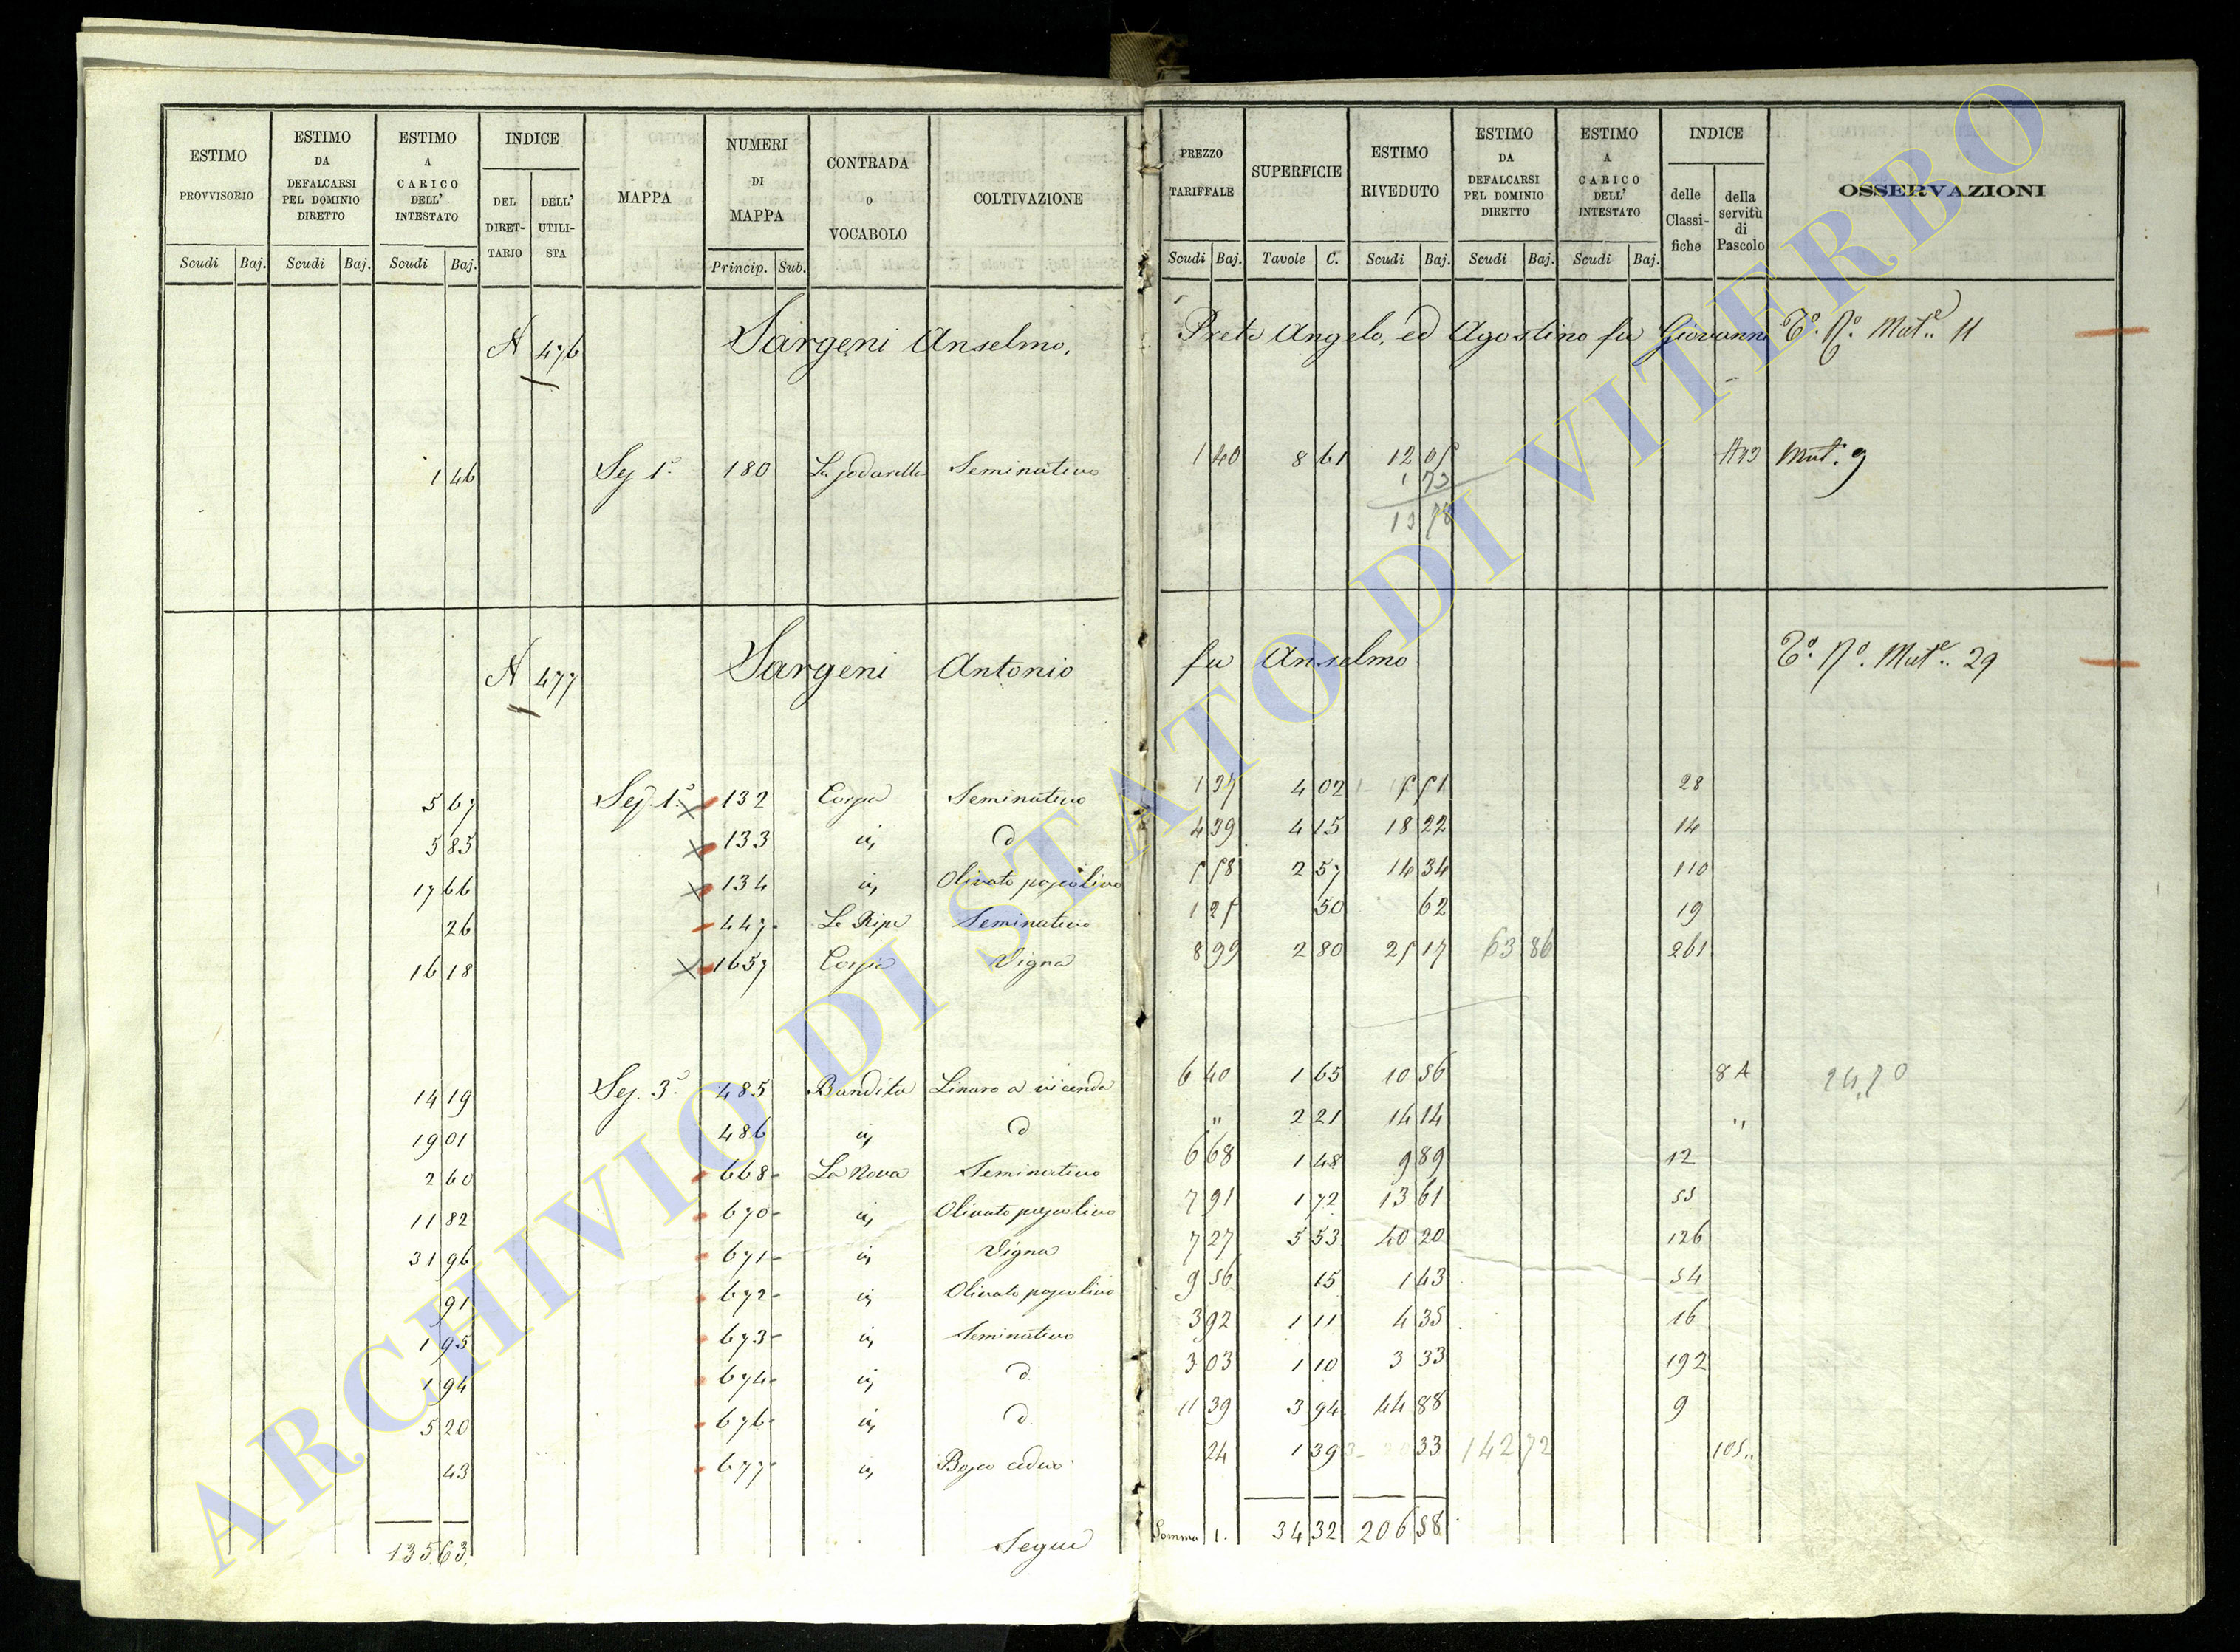 ESTIMO PROVVISORIO | ESTIMO DA DEFALCARSI PEL DOMINIO DIRETTO | ESTIMO A CARICO DELL' INTESTATO | INDICE | MAPPA | NUMERI DI MAPPA | CONTRADA O VOCABOLO | COLTIVAZIONE | PREZZO TARIFFALE | SUPERFICIE | ESTIMO RIVEDUTO | ESTIMO DA DEFALCARSI PEL DOMINIO DIRETTO | ESTIMO A CARICO DELL' INTESTATO | INDICE | OSSERVAZIONI
DEL DIRETTARIO | DELL' UTILISTA | delle Classifiche | della servitù di Pascolo
Scudi | Baj. | Scudi | Baj. | Scudi | Baj. | Princip. | Sub. | Scudi | Baj. | Tavole | C. | Scudi | Baj. | Scudi | Baj. | Scudi | Baj.
N 476 Sargeni Anselmo, Prete Angelo, ed Agostino fu Giovanni Mut.e 11
1 46 | Sez 1.a | 180 | Seminativo | 1 40 | 8 61 | 12 05 | Mut. 9
1 73
13 78
N 477 Sargeni Antonio fu Anselmo Mut.e 29
5 67 | Sez. 1.a | 132 | Seminativo | 1 37 | 4 02 | 5 51 | 28
5 85 | 133 | d | 4 39 | 4 15 | 18 22 | 14
17 66 | 134 | Olivato pascolivo | 5 58 | 2 57 | 14 34 | 110
26 | 447 | Le Ripe | Seminativo | 1 25 | 50 | 62 | 19
16 18 | 1657 | Vigna | 8 99 | 2 80 | 25 17 | 63 86 | 261
14 19 | Sez. 3.a | 485 | Bandita | Linaro a vicenda | 6 40 | 1 65 | 10 56 | 8 A
19 01 | 486 | d | " | 2 21 | 14 14 | "
2 60 | 668 | La Nova | Seminativo | 6 68 | 1 48 | 9 89 | 12
11 82 | 670 | Olivato pascolivo | 7 91 | 1 72 | 13 61 | 55
31 96 | 671 | Vigna | 7 27 | 5 53 | 40 20 | 126
91 | 672 | Olivato pascolivo | 9 56 | 15 | 1 43 | 54
1 95 | 673 | Seminativo | 3 92 | 1 11 | 4 35 | 16
1 94 | 674 | d | 3 03 | 1 10 | 3 33 | 192
5 20 | 676 | d | 11 39 | 3 94 | 44 88 | 9
43 | 677 | Bosco ceduo | 24 | 1 39 | 33 | 142 72 | 105
135 63 | Segue | Somma 1. | 34 32 | 206 58
ARCHIVIO DI STATO DI VITERBO